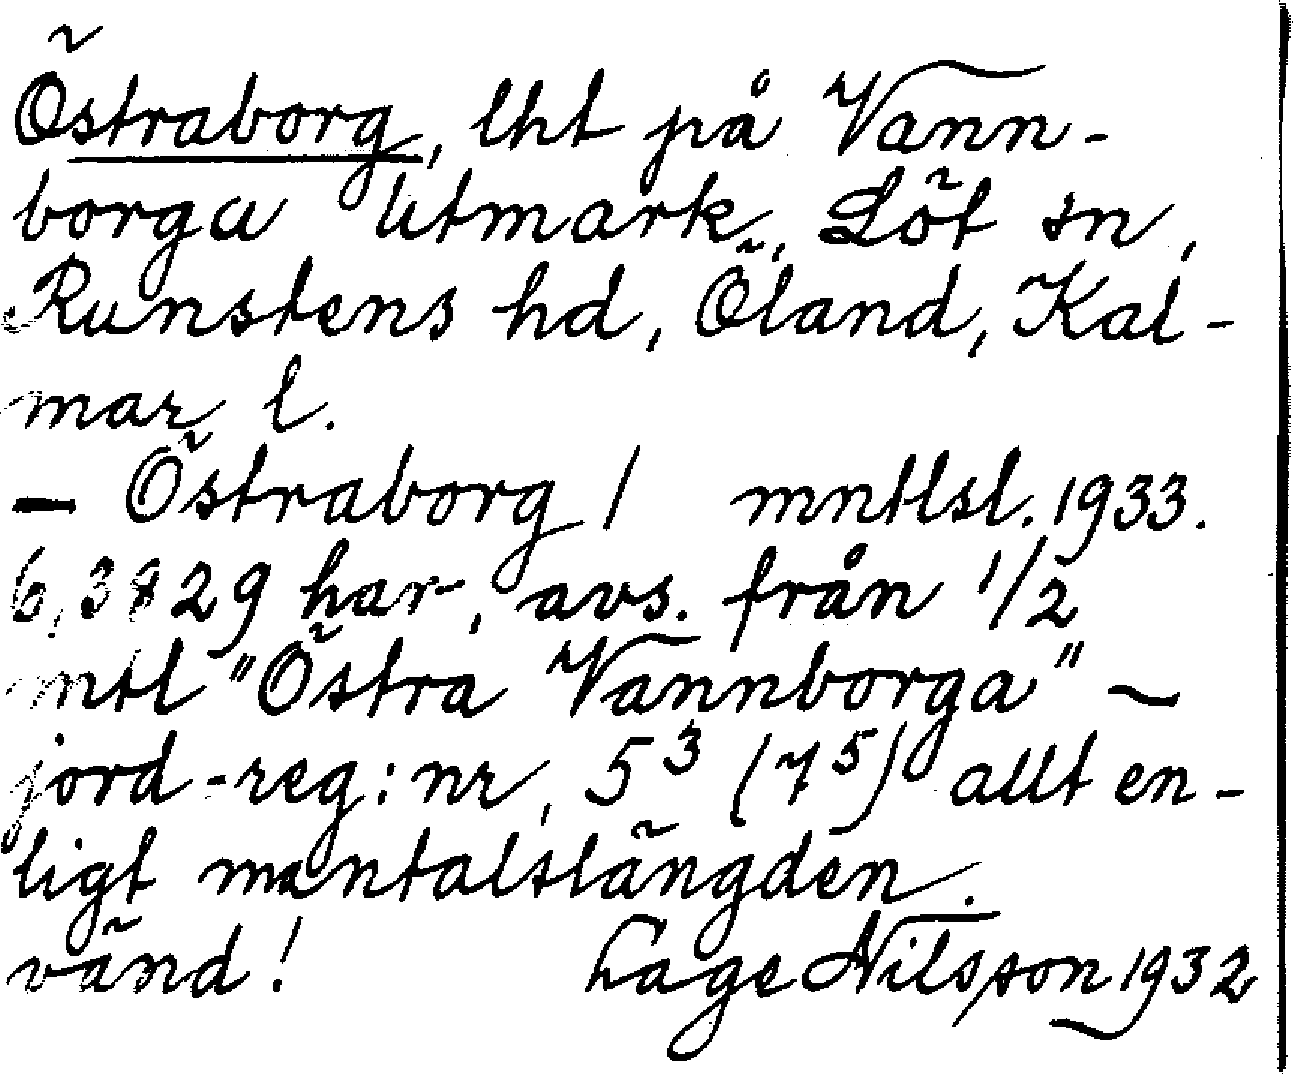 Östraborg, lht på Vann-
borga Utmark, Löt sn,
Runstens hd, Öland, Kal-
mar l.
– Östraborg / mntlsl. 1933.
6,3829 har, avs. från 1/2
mtl "Östra Vannborga" –
jord-reg:nr, 5³ (7⁵) allt en-
ligt mantalslängden.
vänd! Lage Nilsson 1932